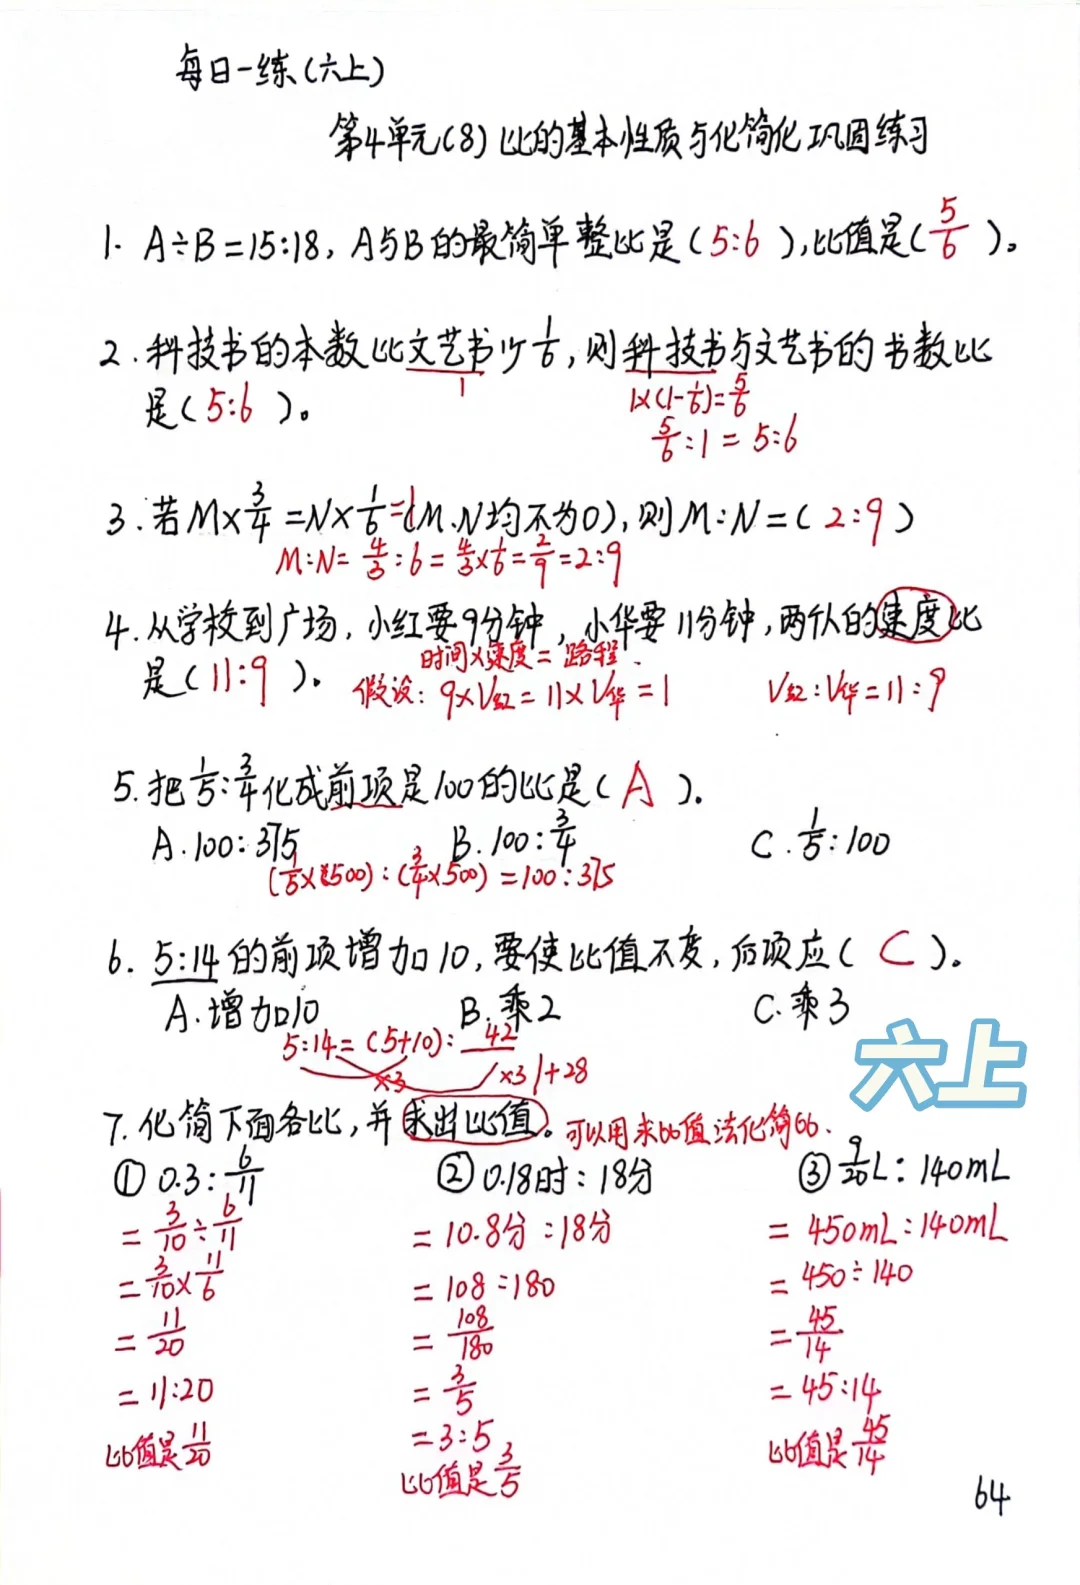 每日一练(六上)
第4单元(8) 比的基本性质与化简化巩固练习
1. A÷B=15:18, A与B的最简单整比是(5:6),比值是(5/6)。
2.科技书的本数比文艺书少1/6,则科技书与文艺书的书数比
1
1×(1-1/6)=5/6
是(5:6)。
5/6:1=5:6
3.若M×3/4=N×1/6=1(M.N均不为0),则M:N=(2:9)
M:N=4/3:6=4/3×1/6=2/9=2:9
4.从学校到广场,小红要9分钟,小华要11分钟,两仆的速度比
时间×速度=路程.
是(11:9)。 假设:9×V红=11×V华=1 V红:V华=11:9
5.把1/5:3/4化成前项是100的比是(A)。
A.100:375 B.100:3/4 C.1/5:100
(1/5×500):(3/4×500)=100:375
6. 5:14的前项增加10,要使比值不变,后项应(C)。
A.增加10 B.乘2 C.乘3
5:14=(5+10):42
×3 ×3 +28
六上
7.化简下面各比,并求出比值。可以用求比值法化简比.
① 0.3:6/11 ② 0.18时:18分 ③ 9/20L:140mL
=3/10÷6/11 =10.8分:18分 =450mL:140mL
=3/10×11/6 =108:180 =450÷140
=11/20 =108/180 =45/14
=11:20 =3/5 =45:14
比值是11/20 =3:5 比值是45/14
比值是3/5
64